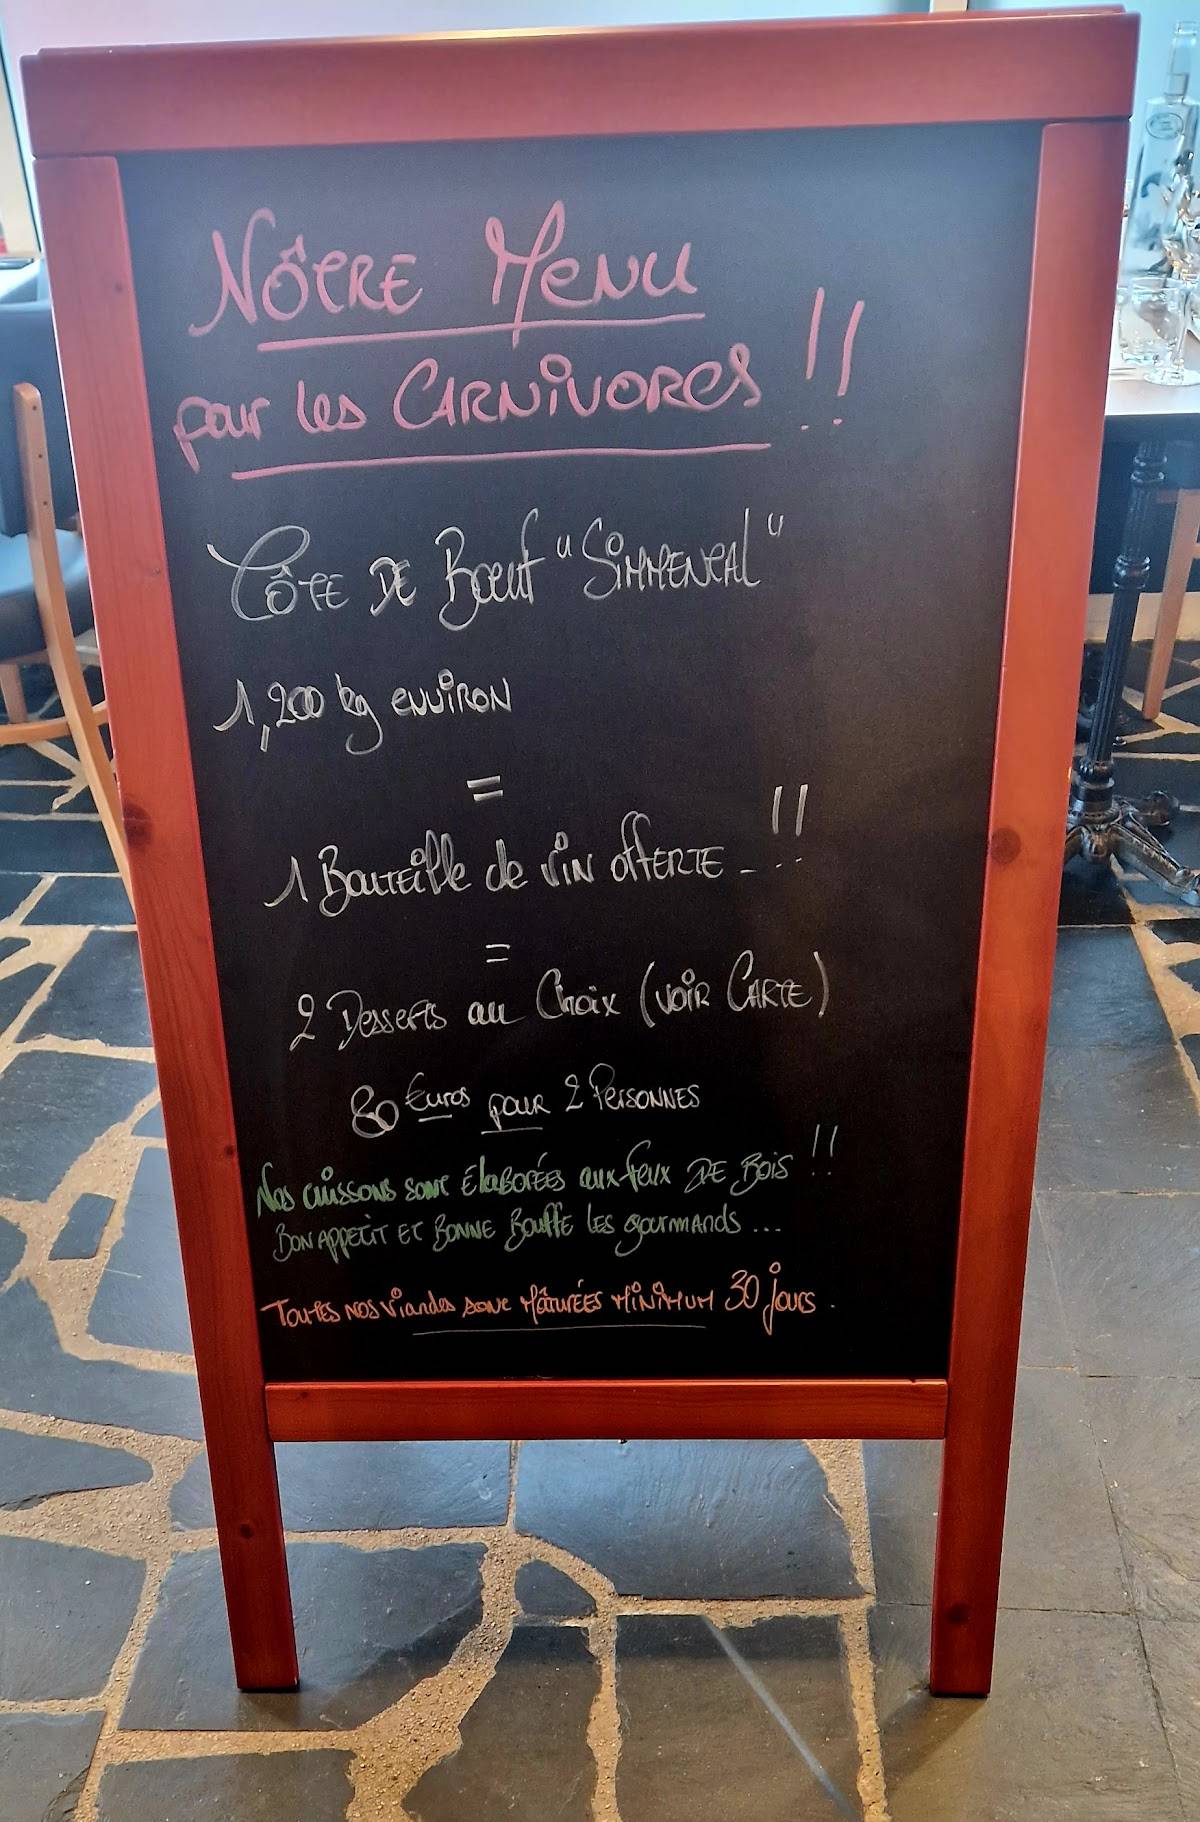 Nôtre Menu
pour les Carnivores !!
Côte de Bœuf "Simmental"
1,200 kg environ
=
1 Bouteille de vin offerte - !!
=
2 Desserts au Choix (voir Carte)
80 Euros pour 2 Personnes
Nos cuissons sont élaborées aux feux de Bois !!
Bon appetit et Bonne Bouffe les gourmands ...
Toutes nos viandes sont Mâturées Minimum 30 jours.